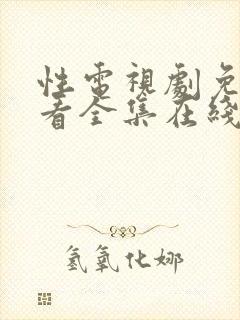 性電視劇免
看全集在綫
氢氧化娜